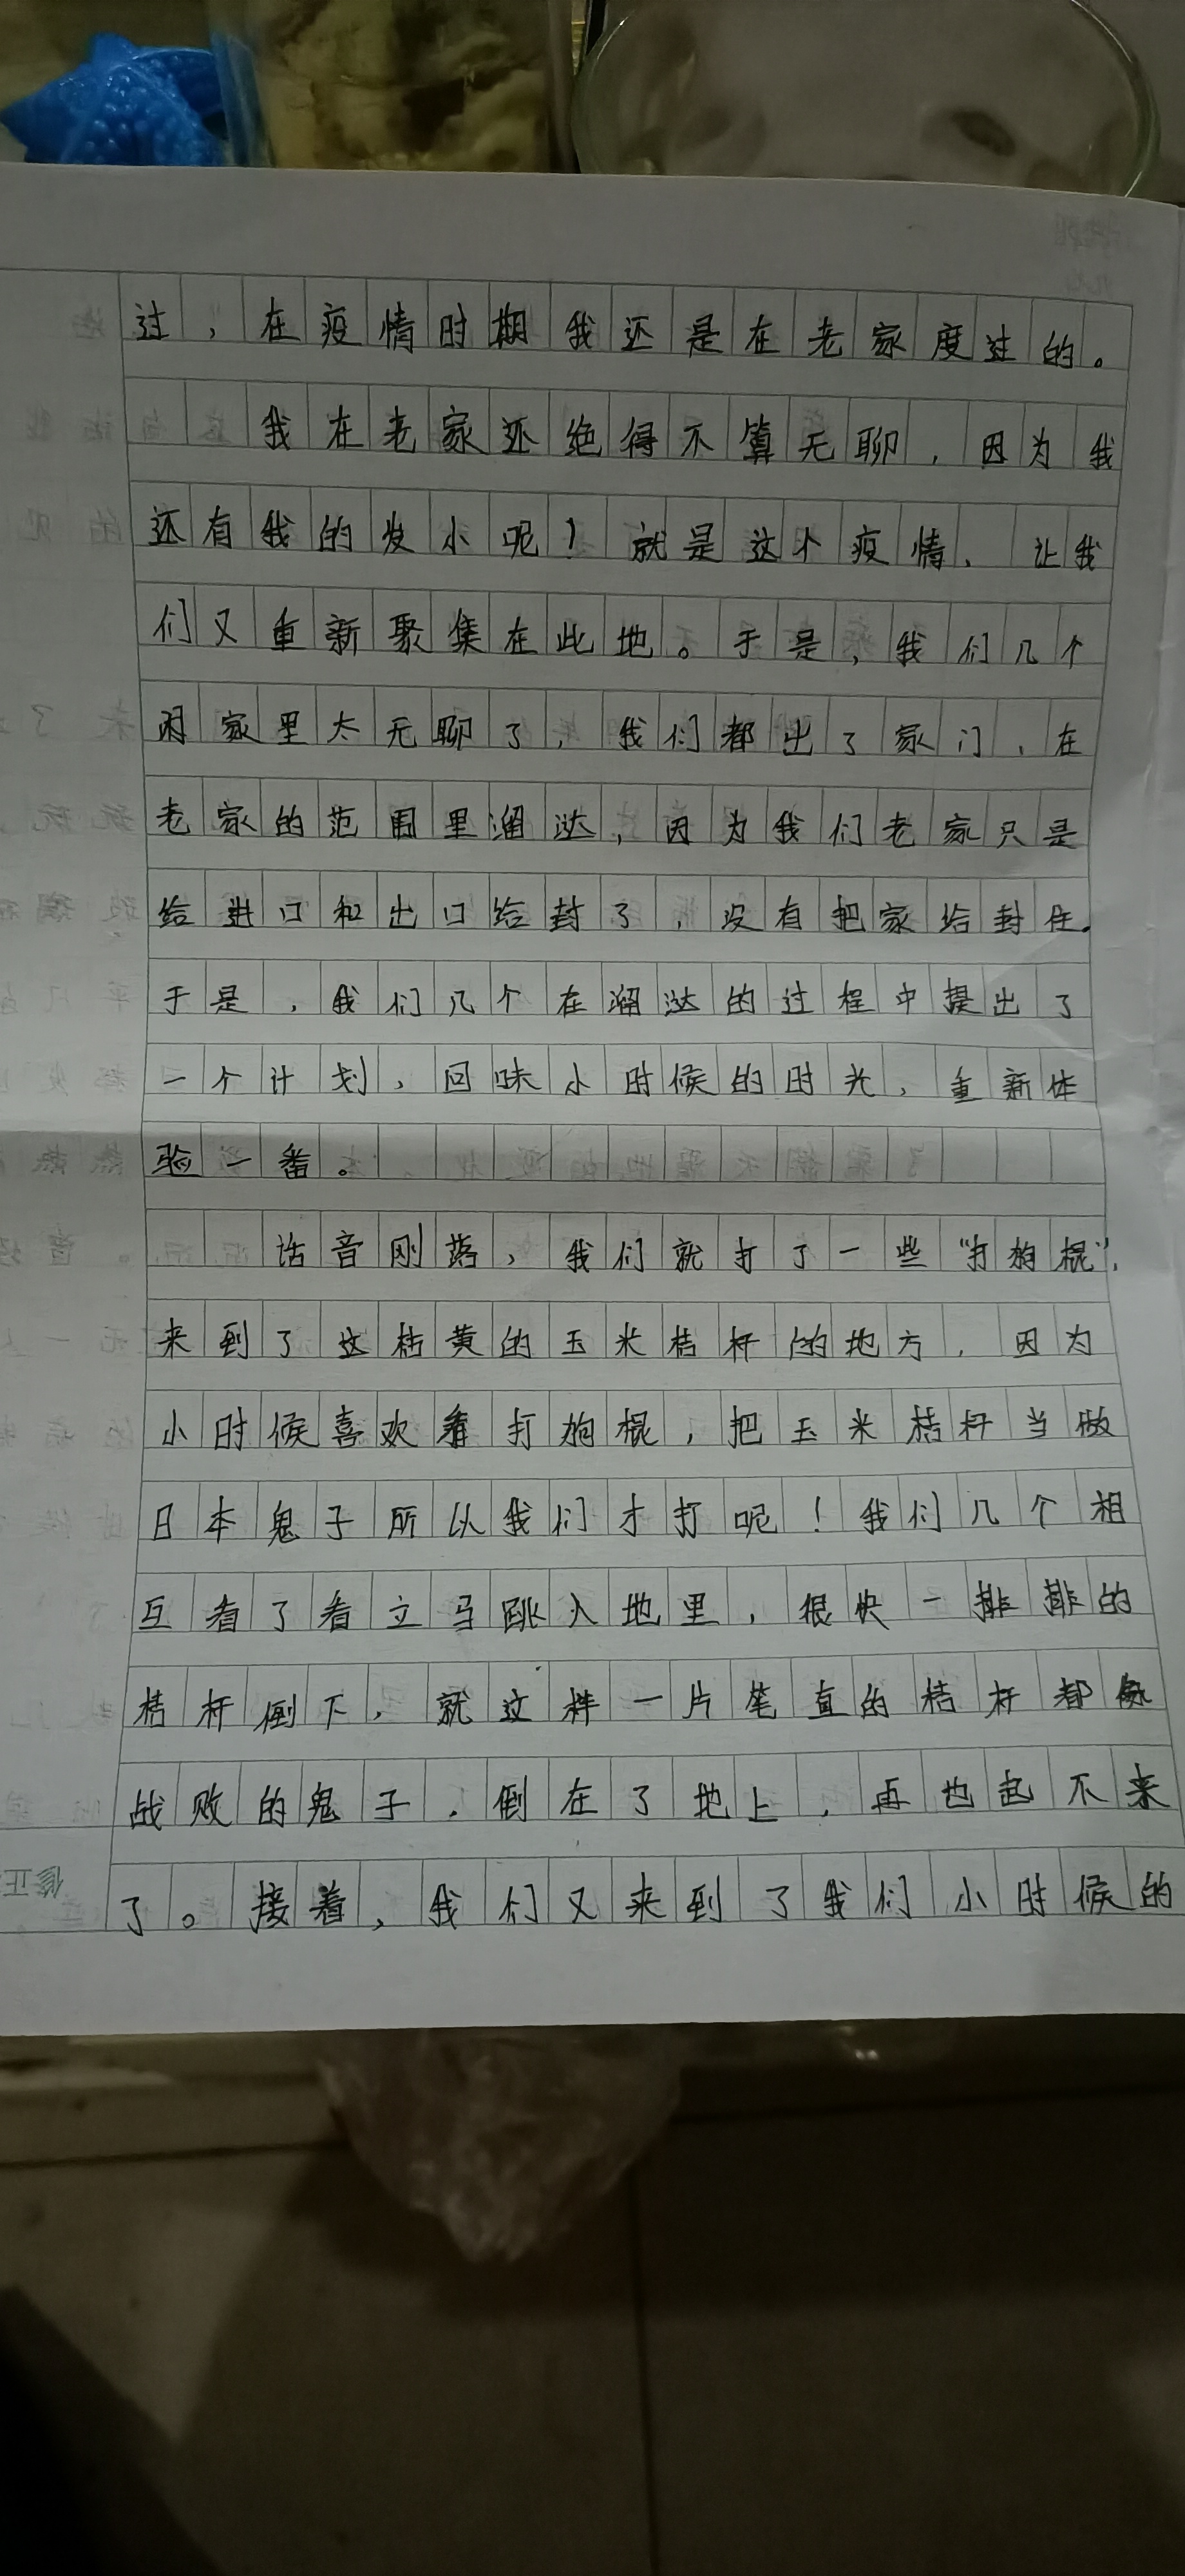 过，在疫情时期我还是在老家度过的。
我在老家还绝得不算无聊，因为我
还有我的发小呢！就是这个疫情，让我
们又重新聚集在此地。于是，我们几个
闲家里太无聊了，我们都出了家门，在
老家的范围里溜达，因为我们老家只是
给进口和出口给封了，没有把家给封住。
于是，我们几个在溜达的过程中提出了
一个计划，回味小时候的时光，重新体
验一番。
话音刚落，我们就打了一些“打狗棍”，
来到了这枯黄的玉米桔杆的地方，因为
小时候喜欢看打狗棍，把玉米桔杆当做
日本鬼子所以我们才打呢！我们几个相
互看了看立马跳入地里，很快一排排的
桔杆倒下，就这样一片笔直的桔杆都像
战败的鬼子，倒在了地上，再也起不来
了。接着，我们又来到了我们小时候的